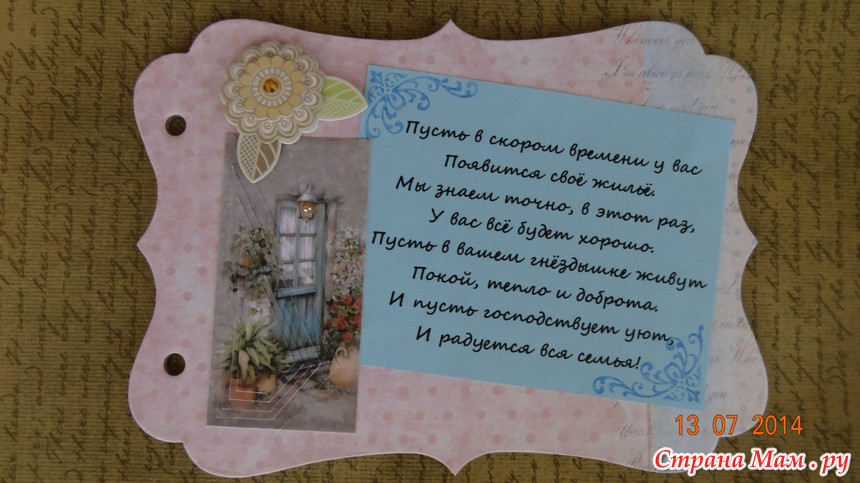 Пусть в скором времени у вас
Появится своё жильё.
Мы знаем точно, в этот раз,
У вас всё будет хорошо.
Пусть в вашем гнёздышке живут
Покой, тепло и доброта.
И пусть господствует уют,
И радуется вся семья!
13 07 2014
Страна Мам.ру